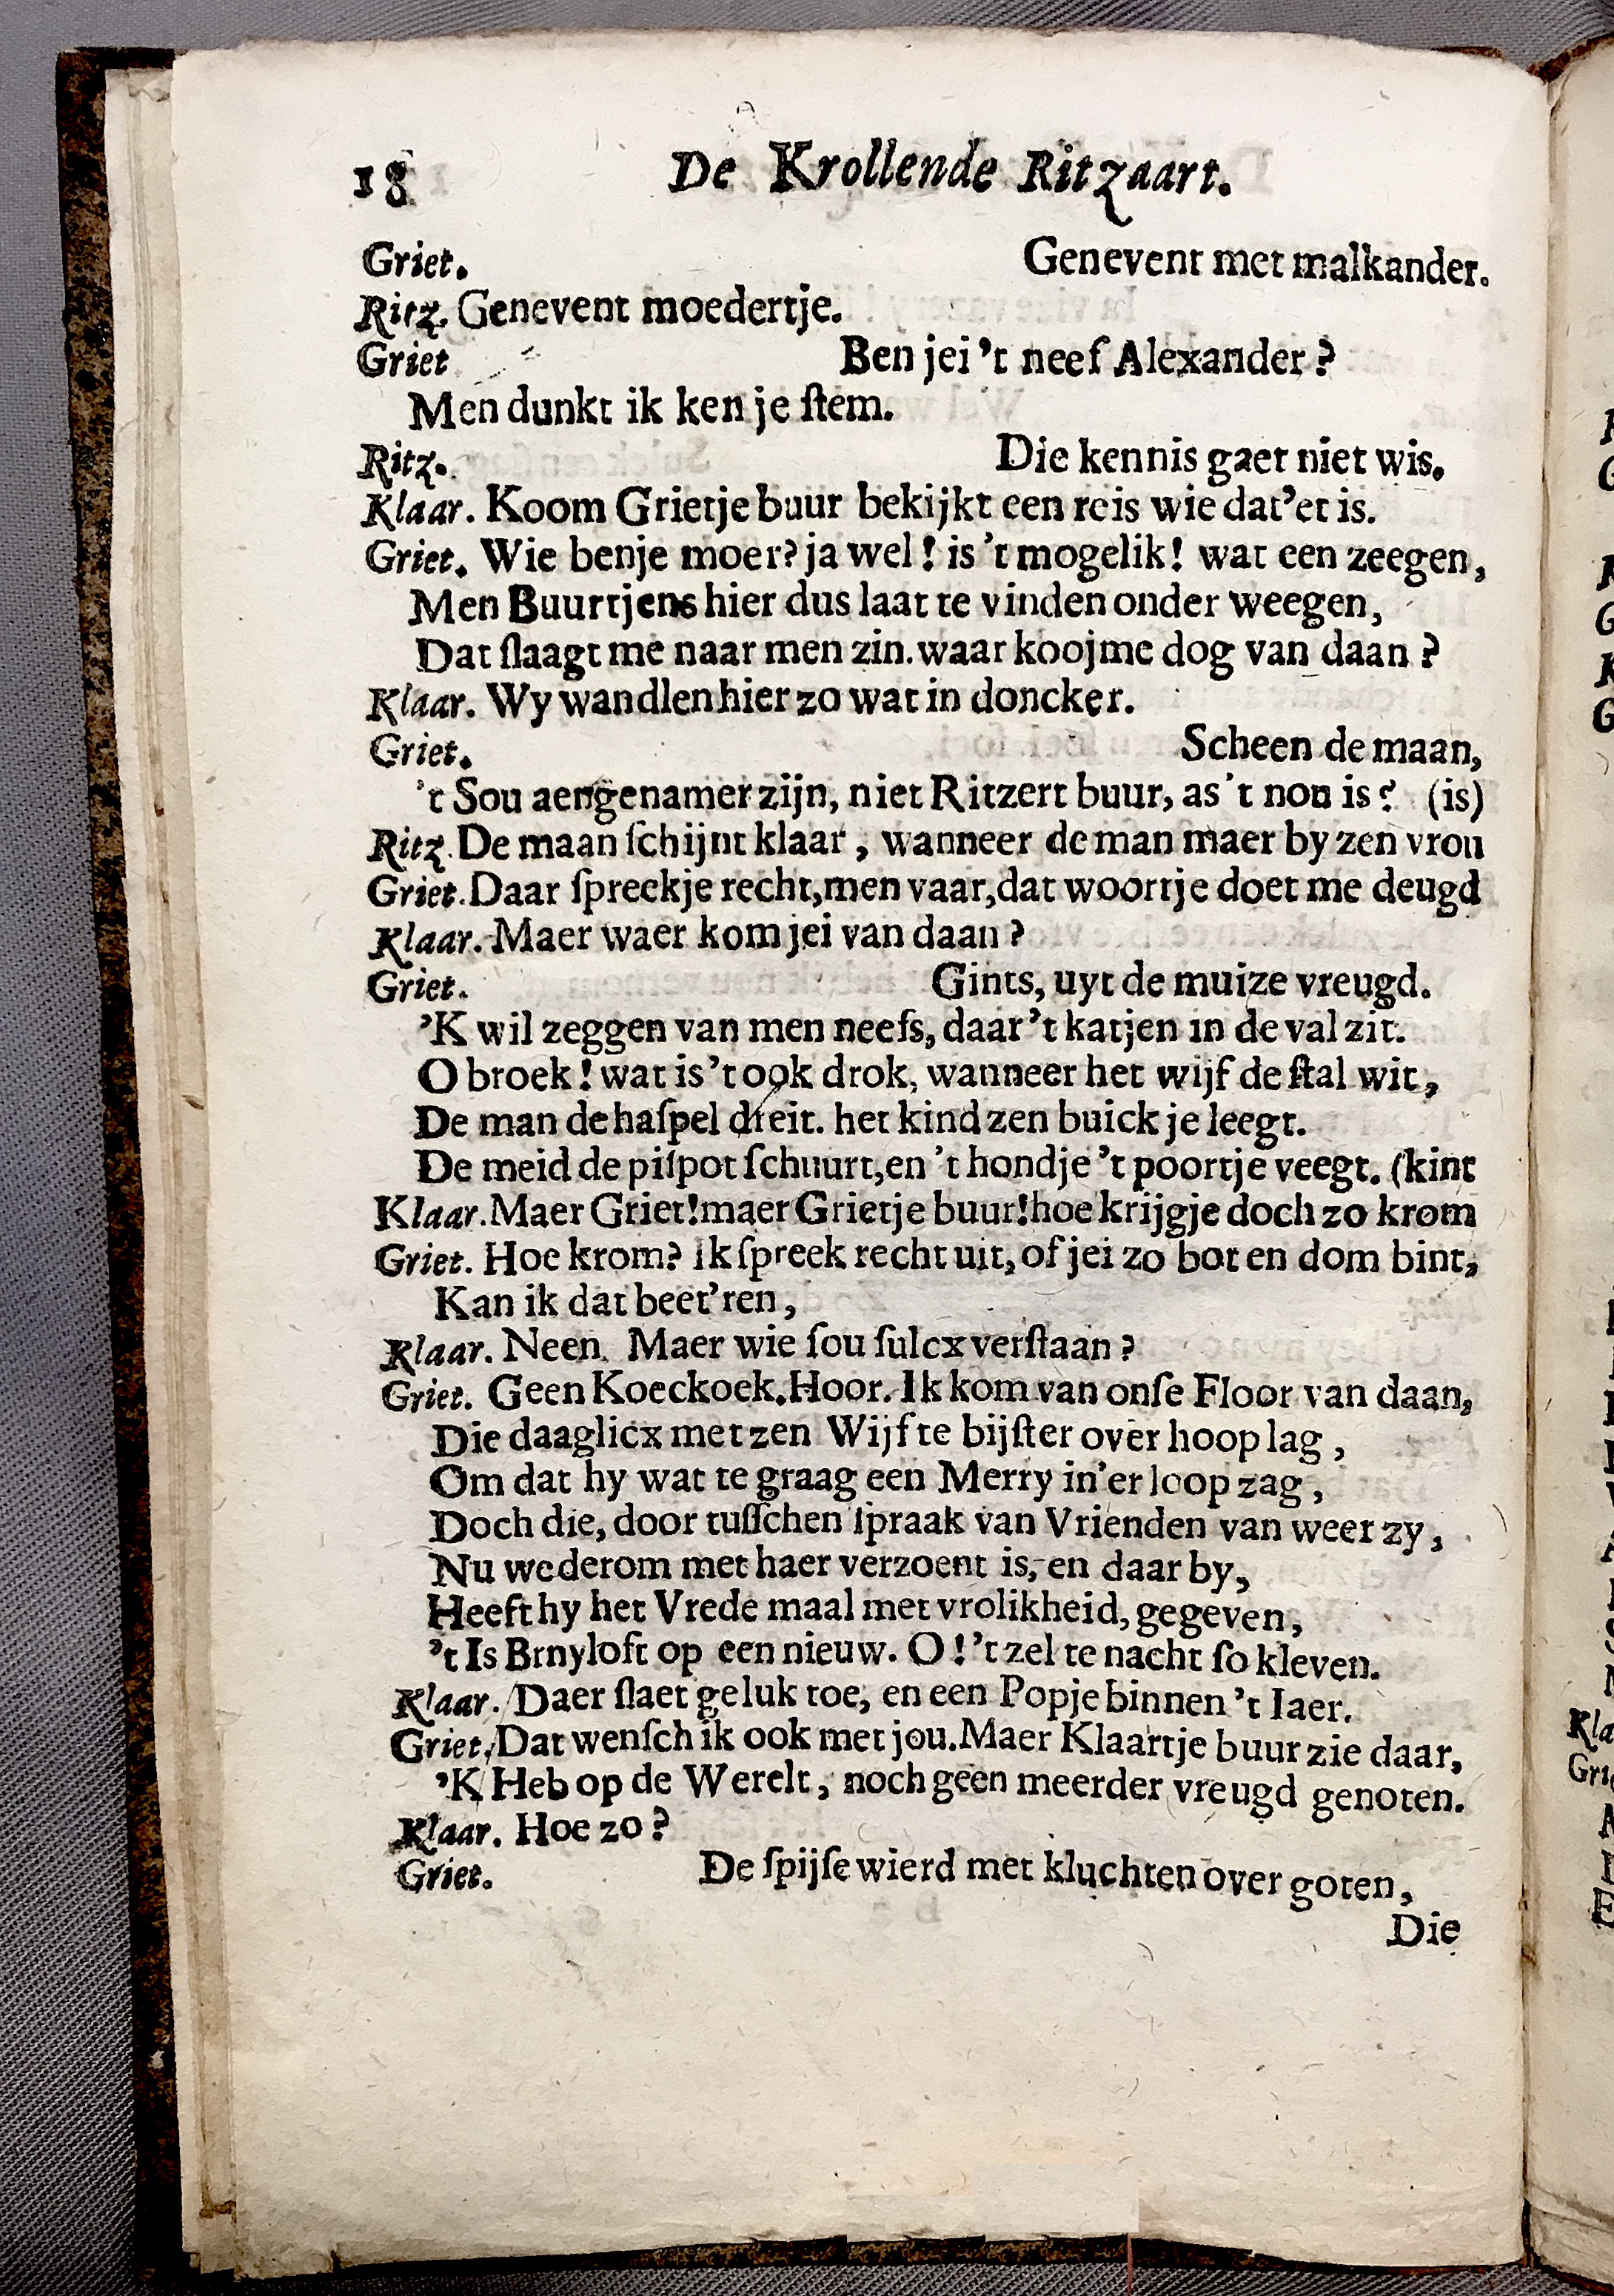 18 De Krollende Ritzaart.
Griet. Genevent met malkander.
Ritz. Genevent moedertje.
Griet Ben jei 't neef Alexander?
Men dunkt ik ken je ſtem.
Ritz. Die kennis gaet niet wis.
Klaar. Koom Grietje buur bekijkt een reis wie dat'et is.
Griet. Wie benje moer? ja wel! is 't mogelik! wat een zeegen,
Men Buurtjens hier dus laat te vinden onder weegen,
Dat ſlaagt me naar men zin. waar koojme dog van daan?
Klaar. Wy wandlen hier zo wat in doncker.
Griet. Scheen de maan,
't Sou aengenamer zijn, niet Ritzert buur, as 't non is? (is)
Ritz. De maan ſchijnt klaar, wanneer de man maer by zen vrou
Griet. Daar ſpreekje recht, men vaar, dat woortje doet me deugd
Klaar. Maer waer kom jei van daan?
Griet. Gints, uyt de muize vreugd.
'K wil zeggen van men neefs, daar 't katjen in de val zit.
O broek! wat is 't ook drok, wanneer het wijf de ſtal wit,
De man de haſpel dreit. het kind zen buick je leegt.
De meid de piſpot ſchuurt, en 't hondje 't poortje veegt. (kint
Klaar. Maer Griet! maer Grietje buur! hoe krijgje doch zo krom
Griet. Hoe krom? Ik ſpreek recht uit, of jei zo bot en dom bint,
Kan ik dat beet'ren,
Klaar. Neen. Maer wie ſou ſulcx verſtaan?
Griet. Geen Koeckoek. Hoor. Ik kom van onſe Floor van daan,
Die daaglicx met zen Wijf te bijſter over hoop lag,
Om dat hy wat te graag een Merry in'er loop zag,
Doch die, door tuſſchen ſpraak van Vrienden van weer zy,
Nu wederom met haer verzoent is, en daar by,
Heeft hy het Vrede maal met vrolikheid, gegeven,
't Is Brnyloft op een nieuw. O! 't zel te nacht ſo kleven.
Klaar. Daer ſlaet geluk toe, en een Popje binnen 't Iaer.
Griet. Dat wenſch ik ook met jou. Maer Klaartje buur zie daar,
'K Heb op de Werelt, noch geen meerder vreugd genoten.
Klaar. Hoe zo?
Griet. De ſpijſe wierd met kluchten over goten,
Die